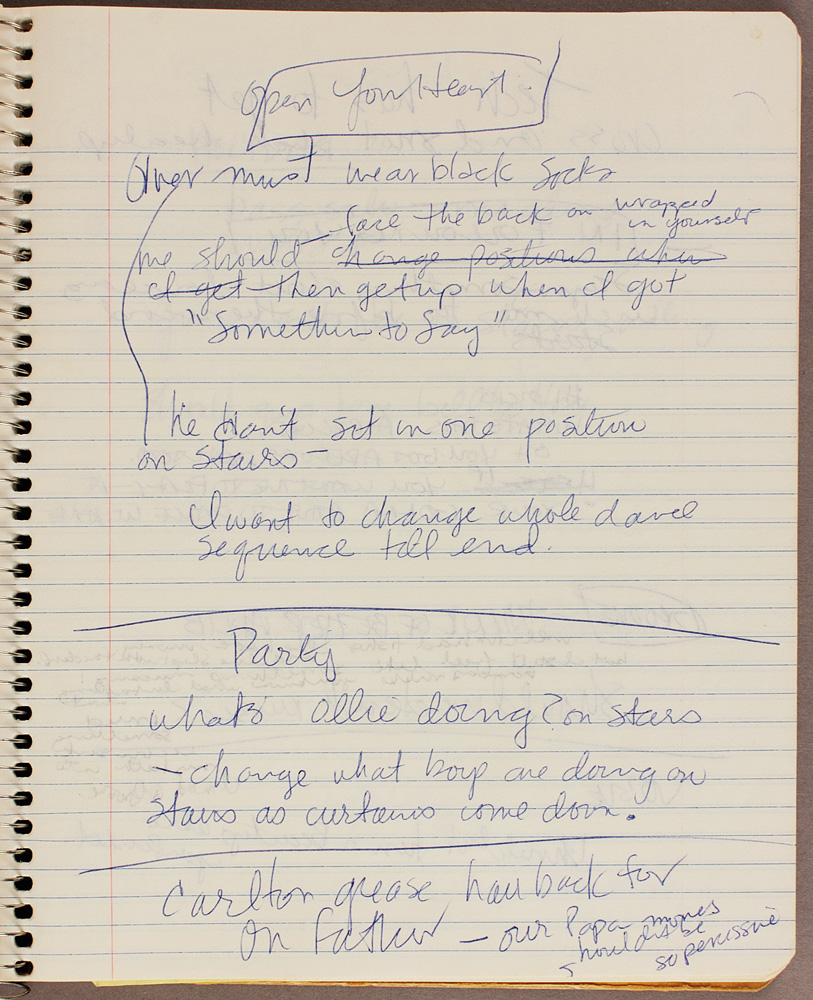 Open Your Heart
Oliver must wear black socks
face the back on wrapped
in yourself
me should change positions when
I get then get up when I got
"Somethin to Say"
he don't sit in one position
on stairs —
I want to change whole dance
sequence till end.
Party
what's Ollie doing? on stairs
— change what boys are doing on
stairs as curtains come down.
Carlton grease hair back for
on Father — our Papa moves
shouldn't be
so percussive